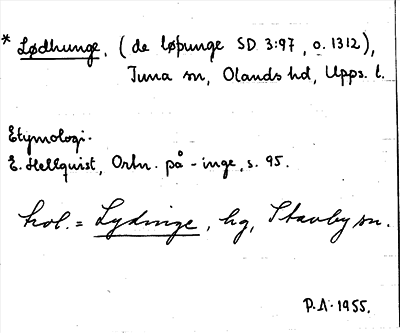 * Lødhunge, (de løpunge SD 3:97, o. 1312),
Tuna sn, Olands hd, Upps. l.
Etymologi.
E. Hellquist, Ortn. på -inge, s. 95.
trol. = Lydinge, hg, Stavby sn.
P.A. 1955.